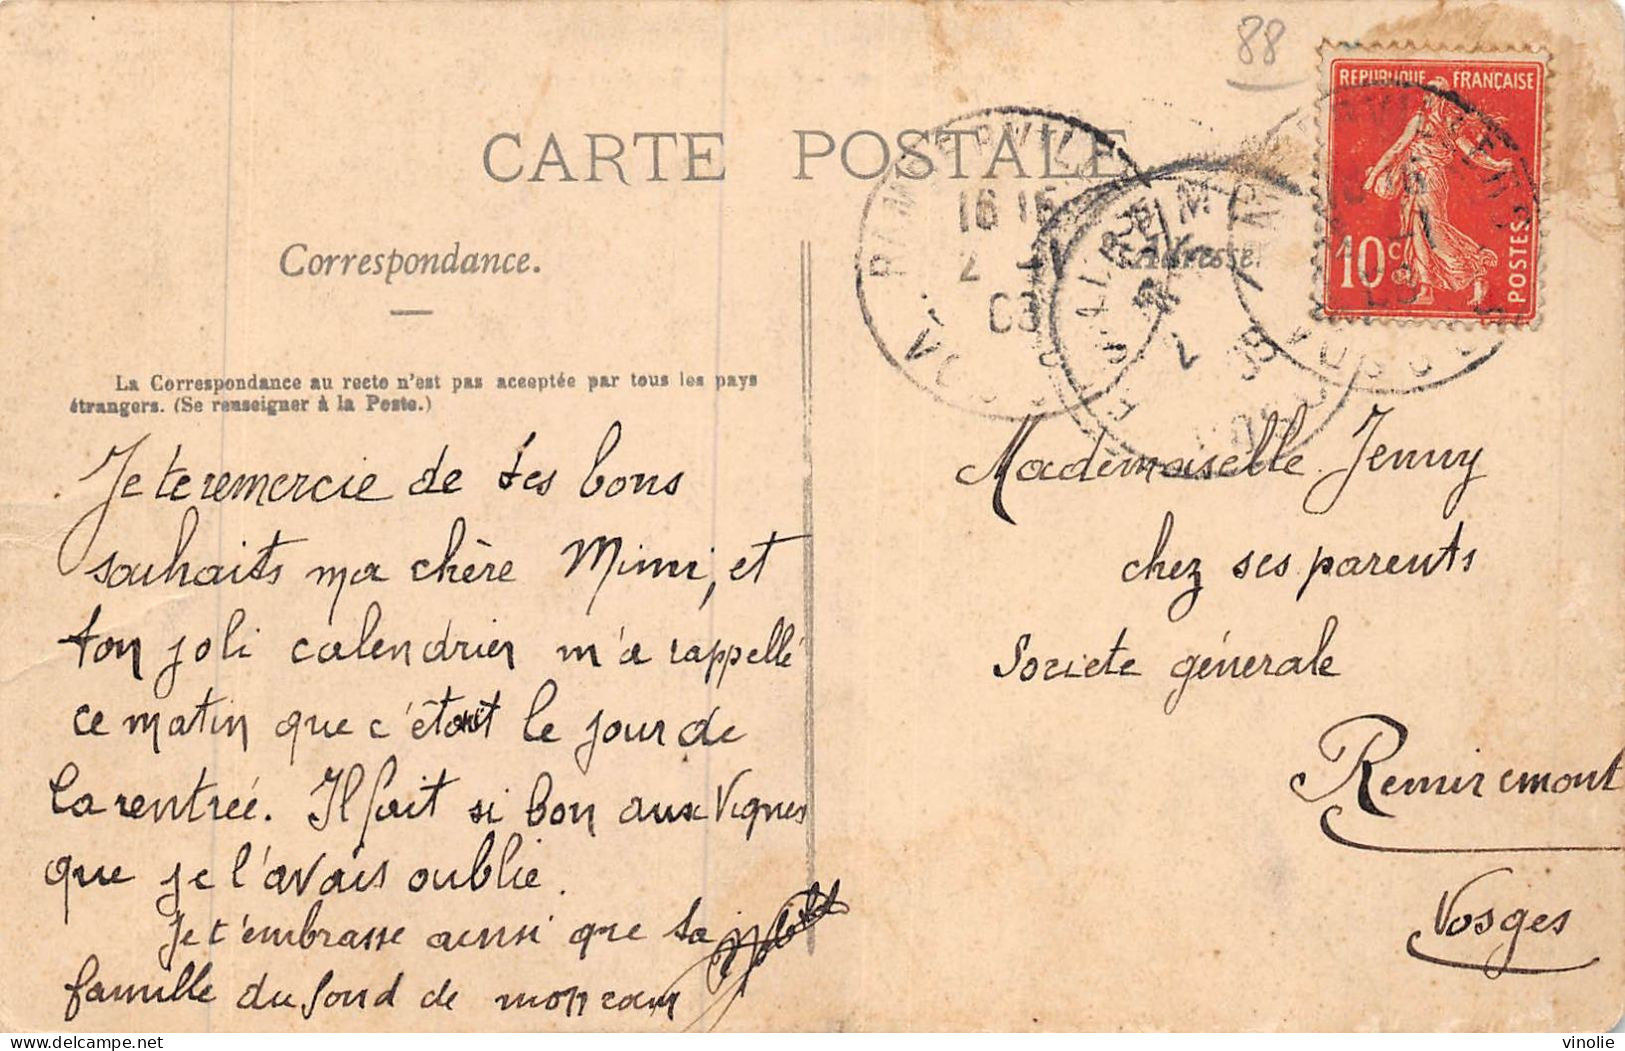 88
REPUBLIQUE FRANÇAISE
10c
POSTES
CARTE POSTALE
RAMBERVILLERS
16 15
2
VOSGES
REMIREMONT
VOSGES
Correspondance.
Adresse
La Correspondance au recto n'est pas acceptée par tous les pays
étrangers. (Se renseigner à la Poste.)
Je te remercie de tes bons
souhaits ma chère Mimi, et
ton joli calendrier m'a rappellé
ce matin que c'était le jour de
la rentrée. Il fait si bon aux Vignes
que je l'avais oublié.
Je t'embrasse ainsi que ta
famille du fond de mon cœur
Mademoiselle Jenny
chez ses parents
Societe génerale
Remiremont
Vosges
vinolie